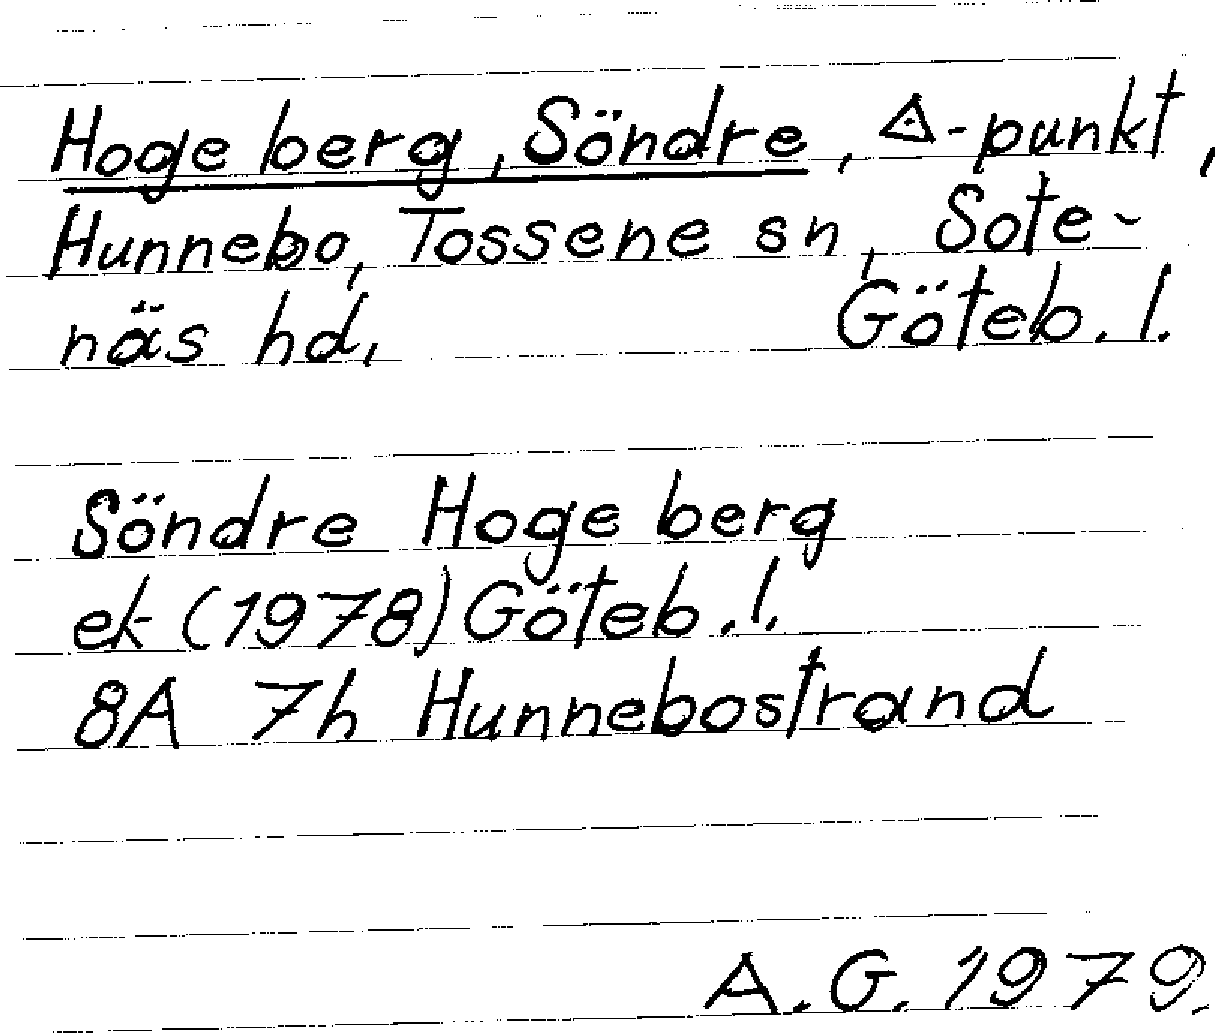 Hoge berg, Söndre, ◬-punkt,
Hunnebo, Tossene sn, Sote-
näs hd, Göteb. l.
Söndre Hoge berg
ek (1978) Göteb. l.
8A 7h Hunnebostrand
A. G. 1979.